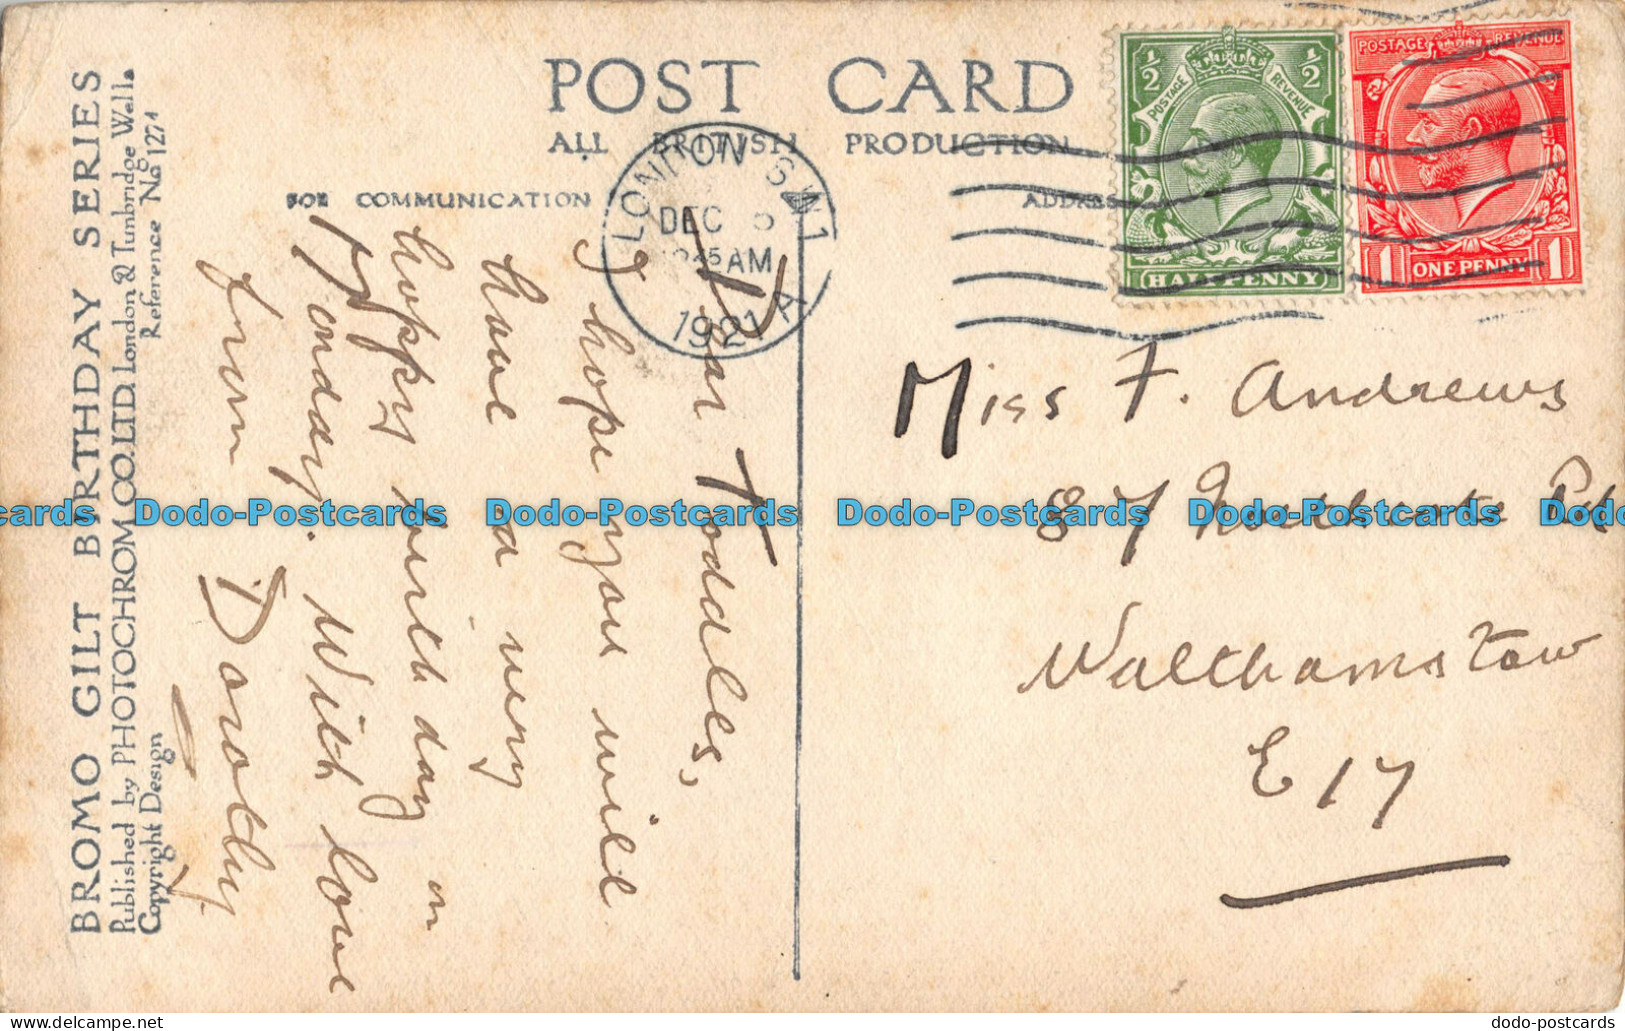 POST CARD
ALL BRITISH PRODUCTION
FOR COMMUNICATION
ADDRESS
LONDON S.W.1
DEC
AM
1921
A
POSTAGE REVENUE
½ ½
HALFPENNY
POSTAGE REVENUE
1 ONE PENNY 1
BROMO GILT BIRTHDAY SERIES
Published by PHOTOCHROM CO. LTD. London & Tunbridge Wells
Copyright Design Reference No 1271
Dear Toddles,
I hope you will
have a very
happy birthday on
Monday. With love
from Dorothy
Miss F. Andrews
87 Rd
Walthamstow
E 17
Dodo-Postcards Dodo-Postcards Dodo-Postcards Dodo-Postcards
dodo-postcards